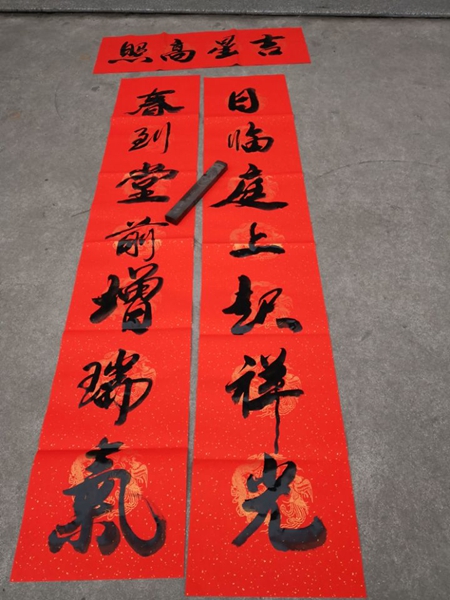 吉星高照
日临庭上起祥光
春到堂前增瑞氣